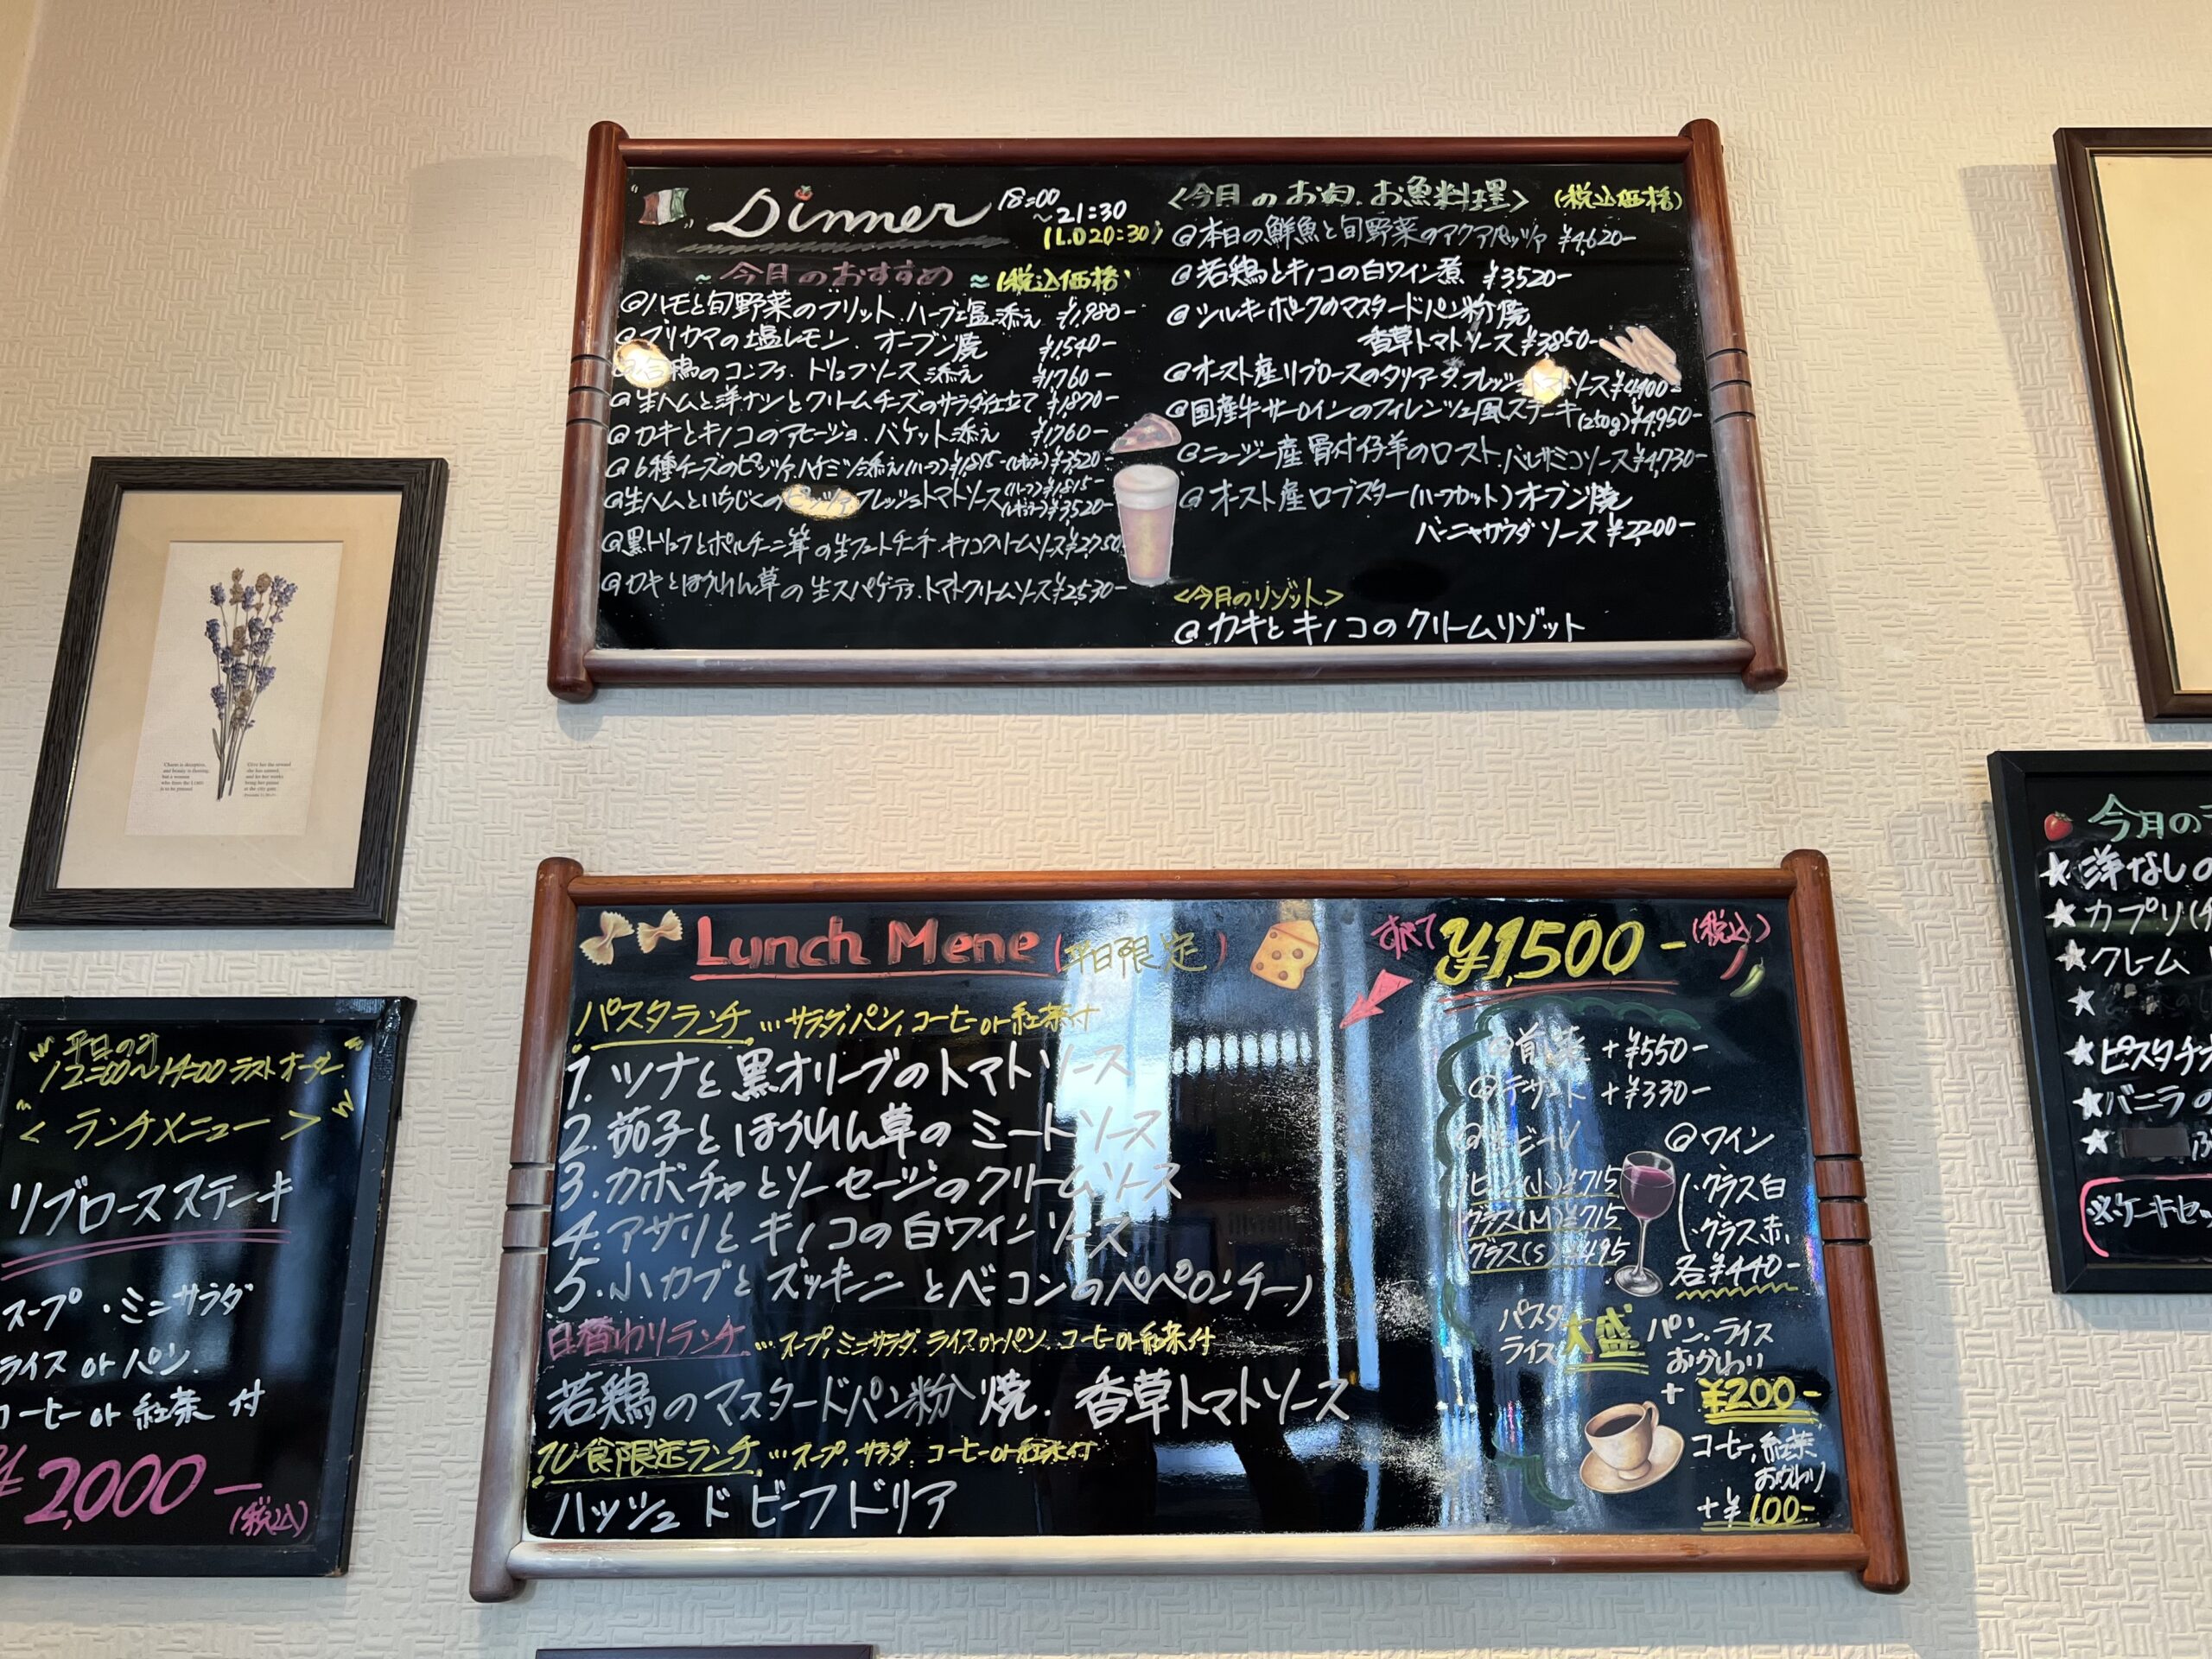 Dinner 18:00
~21:30
(L.O 20:30)
~今月のおすすめ~(税込価格)
@ハモと旬野菜のフリット.ハーブ塩添え ¥1,980-
@ブリカマの塩レモン.オーブン焼 ¥1,540-
鶏のコンフィ.トリュフソース添え ¥1,760-
@生ハムと洋ナシとクリームチーズのサラダ仕立て ¥1,870-
@カキとキノコのアヒージョ.バケット添え ¥1760-
@6種チーズのピッツァ.ハチミツ添え(ハーフ)¥1,815-(レギュラー)¥3,520-
@生ハムといちじくのピッツァ.フレッシュトマトソース(ハーフ)¥1,815-
(レギュラー)¥3520-
@黒トリュフとポルチーニ茸の生フェットチーネ.キノコクリームソース¥2,750
@カキとほうれん草の生スパゲティ.トマトクリームソース¥2,530-
<今月のお肉.お魚料理> (税込価格)
@本日の鮮魚と旬野菜のアクアパッツァ ¥4,620-
@若鶏とキノコの白ワイン煮 ¥3520-
@シルキーポークのマスタードパン粉焼
香草トマトソース ¥3850-
@オースト産リブロースのタリアータ.フレッシュトマトソース¥4,400-
@国産牛サーロインのフィレンツェ風ステーキ(250g)¥4,950-
@ニュージー産骨付仔羊のロースト.バルサミコソース¥4,730-
@オースト産ロブスター(ハーフカット)オーブン焼
バーニャカウダソース ¥2,200-
<今月のリゾット>
@カキとキノコのクリームリゾット
Lunch Mene (平日限定)
すべて ¥1,500- (税込)
パスタランチ…サラダ,パン,コーヒーor紅茶付
1.ツナと黒オリーブのトマトソース
2.茄子とほうれん草のミートソース
3.カボチャとソーセージのクリームソース
4.アサリとキノコの白ワインソース
5.小カブとズッキーニとベーコンのペペロンチーノ
日替わりランチ…スープ,ミニサラダ.ライスorパン.コーヒーor紅茶付
若鶏のマスタードパン粉焼.香草トマトソース
10食限定ランチ…スープ.サラダ.コーヒーor紅茶付
ハッシュドビーフドリア
@前菜 +¥550-
@デザート +¥330-
ビール
ビン(小)¥715
グラス(M)¥715
グラス(S)¥495
@ワイン
・グラス白
・グラス赤
各¥440-
パスタ
ライス
大盛
パン.ライス
おかわり
+ ¥200-
コーヒー,紅茶
おかわり
+¥100-
平日のみ
12:00~14:00ラストオーダー
<ランチメニュー>
リブロースステーキ
スープ・ミニサラダ
ライス or パン.
コーヒー or 紅茶 付
¥2,000-
(税込)
今月の
★洋なしの
★カプリ
★クレーム
★
★ピスタチオ
★バニラの
★
※ケーキセ